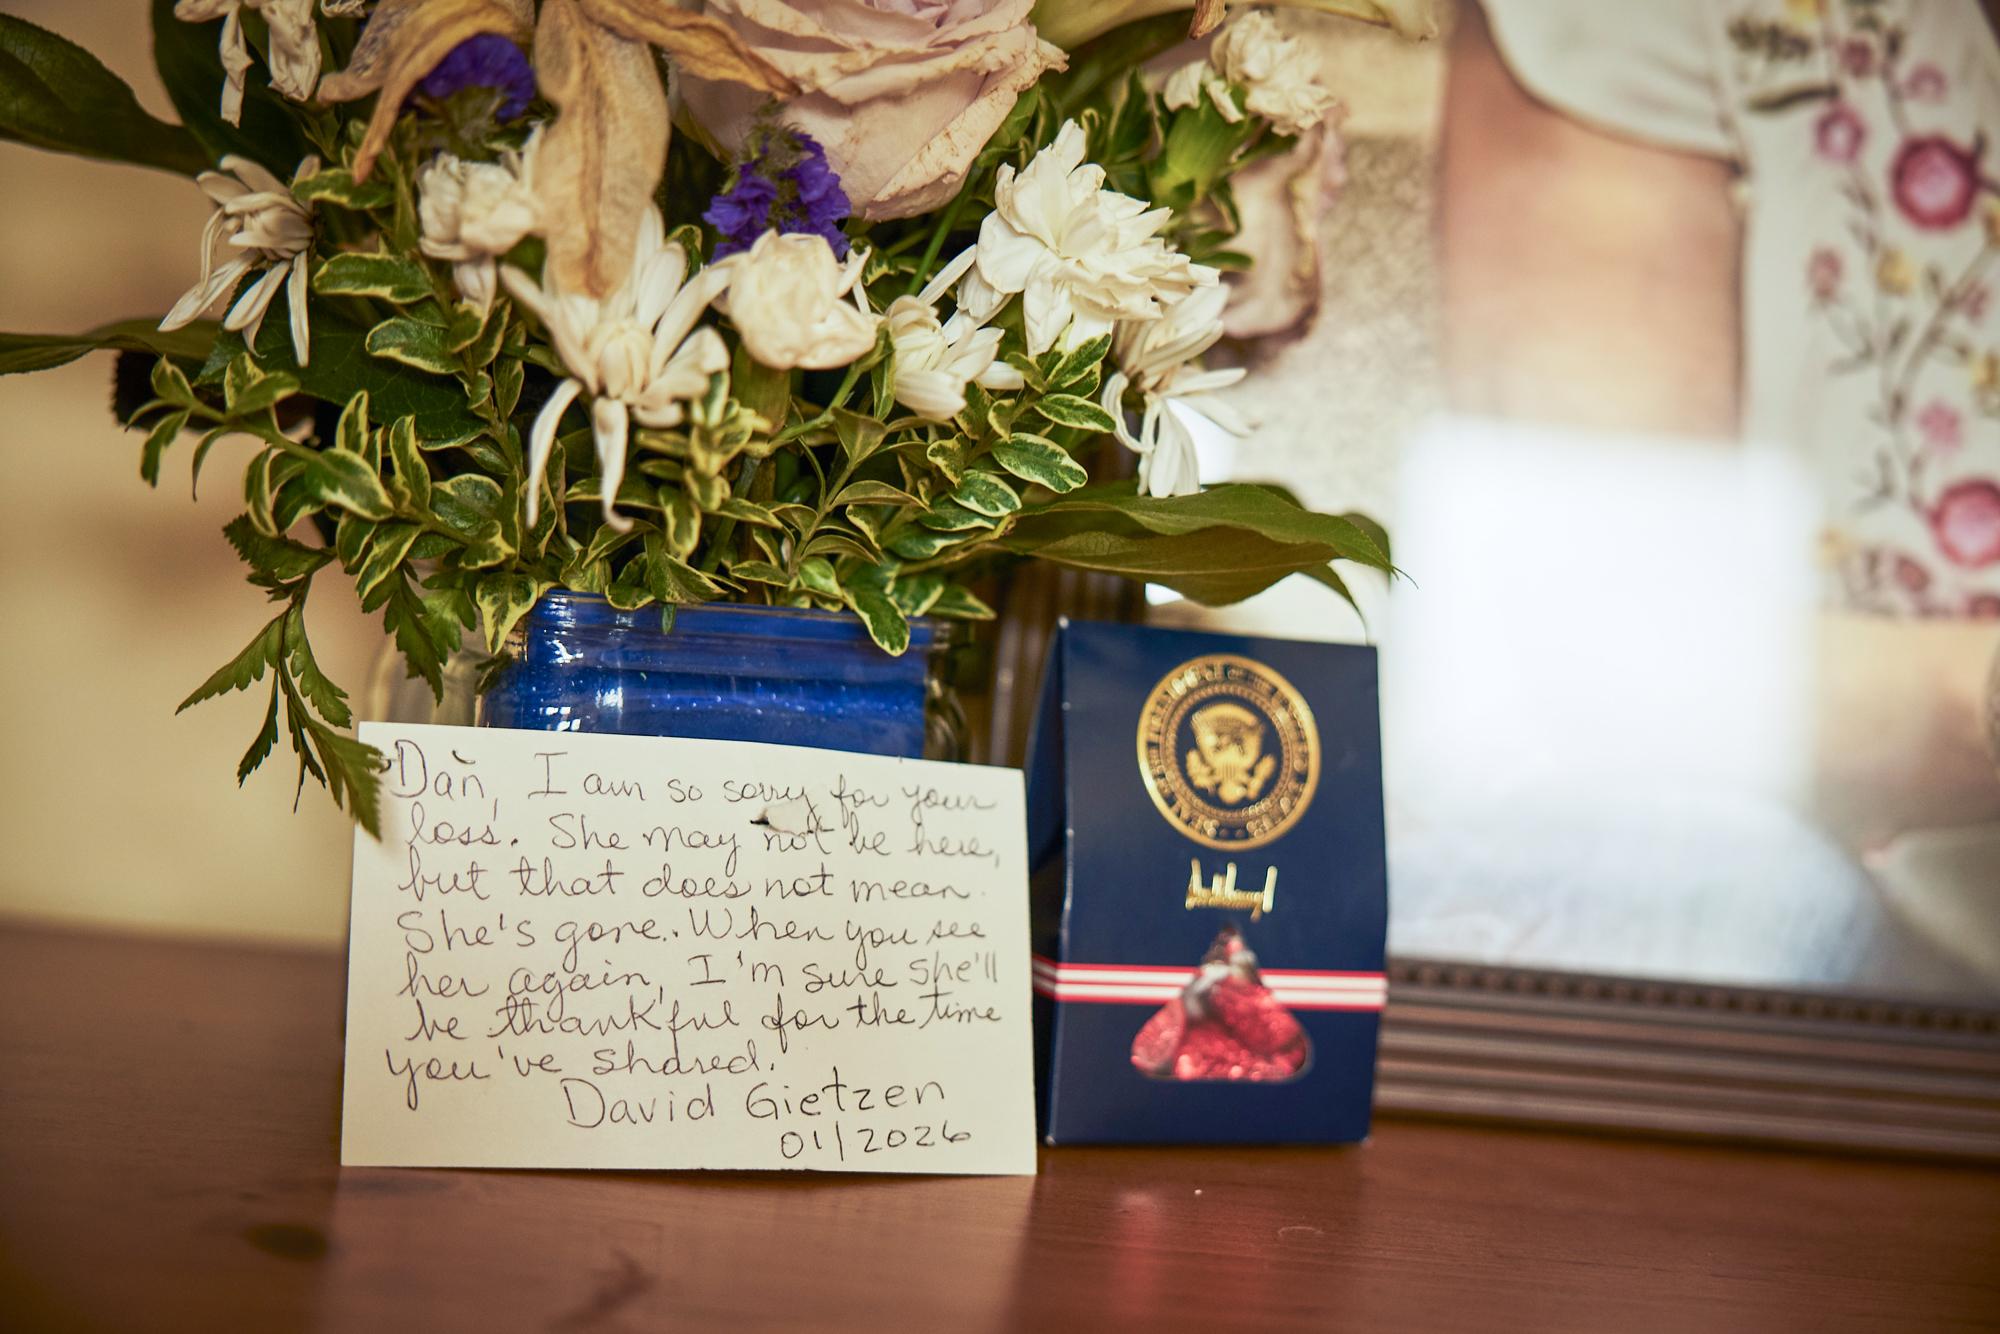 Dan, I am so sorry for your
loss. She may not be here,
but that does not mean
She's gone. When you see
her again, I'm sure she'll
be thankful for the time
you've shared.
David Gietzen
01/2026
SEAL OF THE PRESIDENT OF THE UNITED STATES